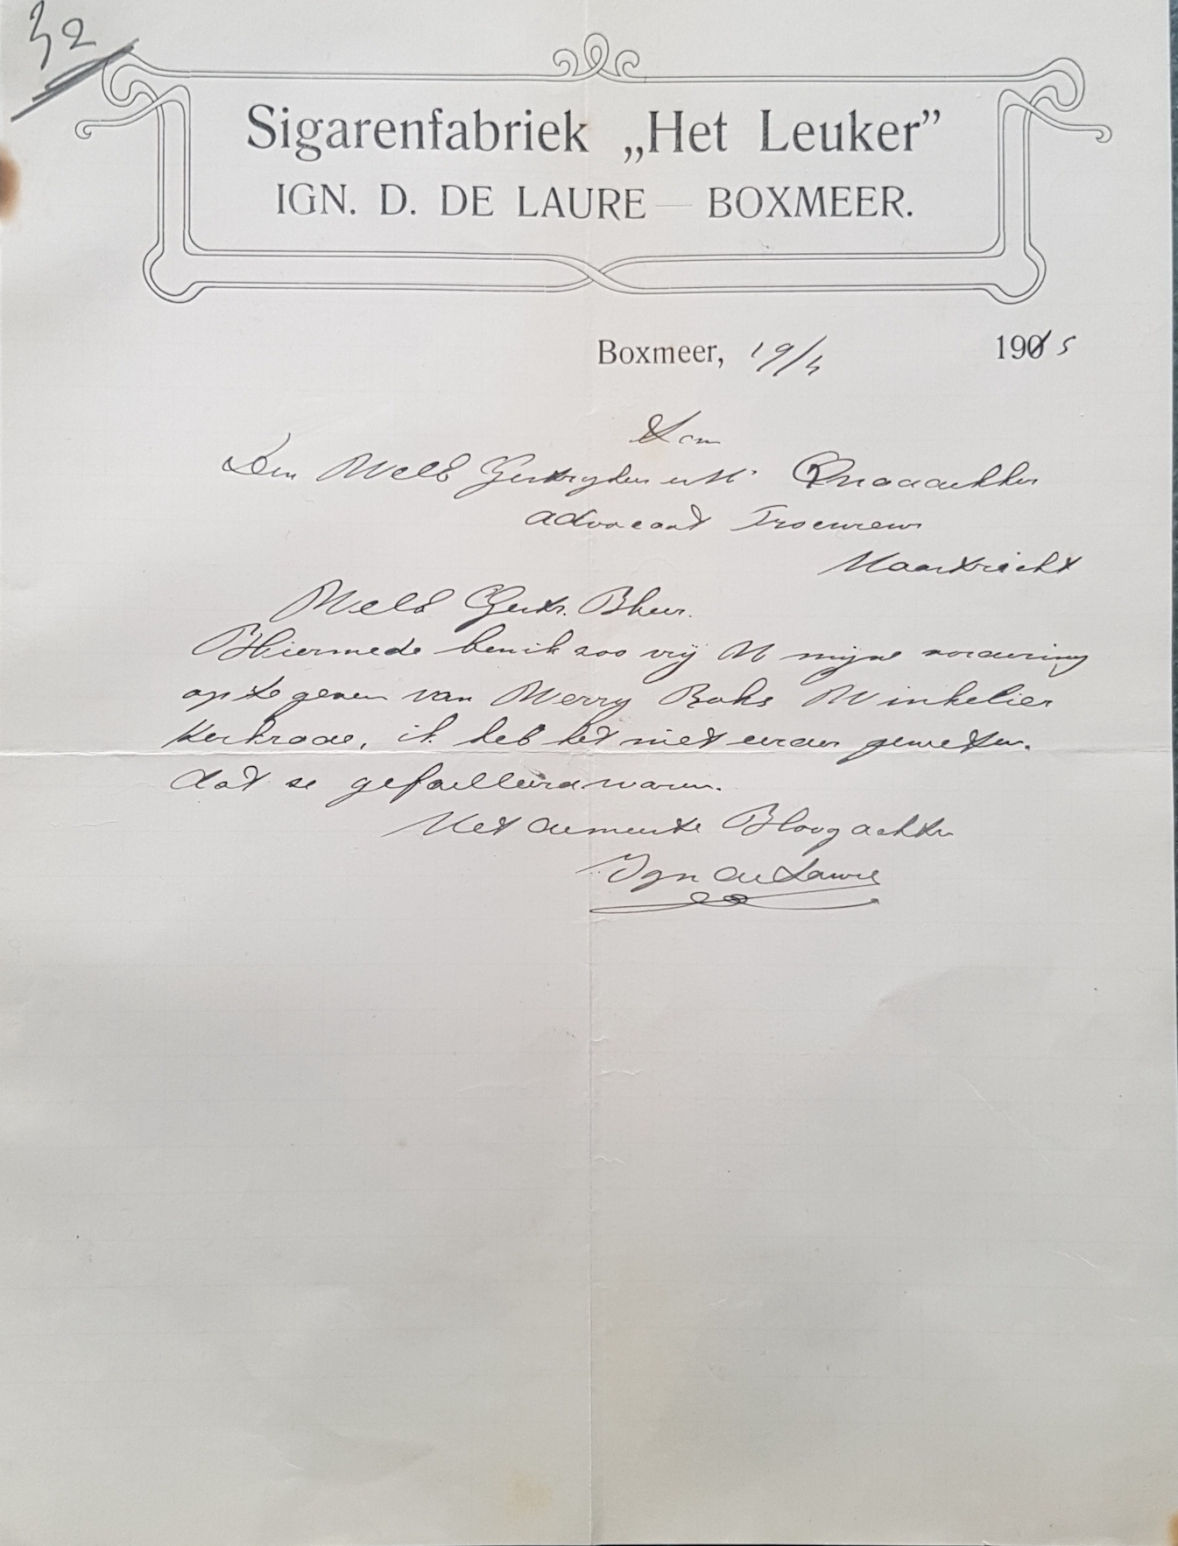 42
Sigarenfabriek „Het Leuker”
IGN. D. DE LAURE — BOXMEER.
Boxmeer, 19/4 1905
Aan
Den Weled Gestrengen
advocaat Procureur
Maastricht
Weled Gestr. Heer.
Hiermede ben ik zoo vrij U mijne vordering
op te geven van Merry Boks Winkelier
Kerkrade, ik heb het niet eerder geweten.
dat ze gefailleerd waren.
Met de meeste Hoogachten
Ign de Laure